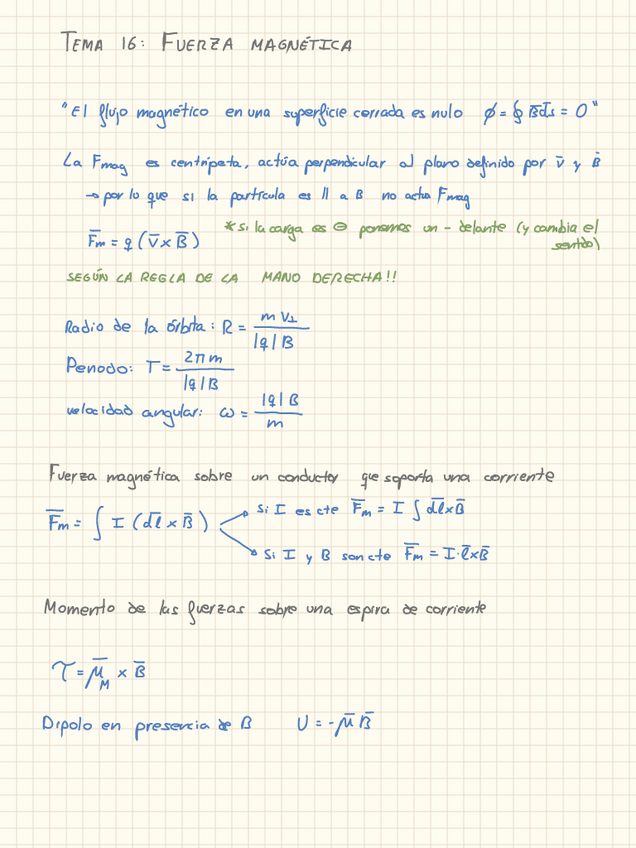 TEMA 16: FUERZA MAGNÉTICA
"El flujo magnético en una superficie cerrada es nulo ϕ = ∮ B̄ d̄s = 0"
La Fmag es centrípeta, actúa perpendicular al plano definido por v̄ y B̄
→ por lo que si la partícula es || a B no actua Fmag
F̄m = q (v̄ x B̄) * si la carga es ⊖ ponemos un - delante (y cambia el
sentido)
SEGÚN LA REGLA DE LA MANO DERECHA!!
Radio de la órbita: R = m v⊥ / |q| B
Periodo: T = 2π m / |q| B
velocidad angular: ω = |q| B / m
Fuerza magnética sobre un conductor que soporta una corriente
F̄m = ∫ I (d̄l x B̄) Si I es cte F̄m = I ∫ d̄l x B̄
Si I y B son cte F̄m = I · l̄ x B̄
Momento de las fuerzas sobre una espira de corriente
τ = μ̄M x B̄
Dipolo en presencia de B U = - μ̄ B̄